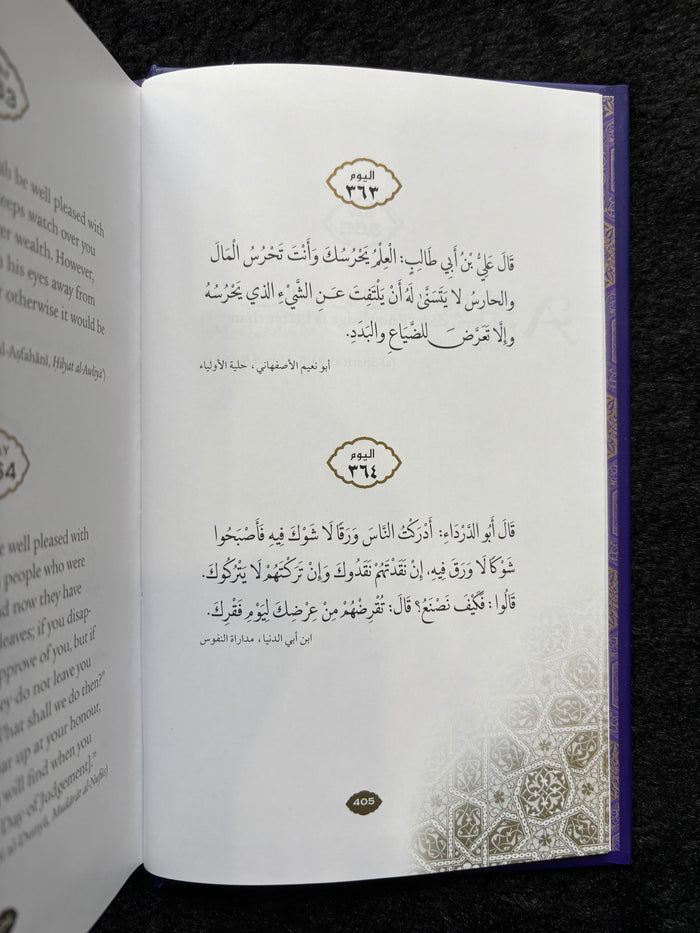 th be well pleased with
eeps watch over you
er wealth. However,
n his eyes away from
r otherwise it would be
al-Aṣfahānī, Ḥilyat al-Awliyā')
64
e well pleased with
people who were
nd now they have
leaves; if you disap-
pprove of you, but if
ey do not leave you
What shall we do then?"
ar up at your honour,
will find when you
Day of Judgement]."
al-Dunyā, Mudārāt al-Nufūs)
اليوم
٣٦٣
قَالَ عَلِيُّ بْنُ أَبِي طَالِبٍ: الْعِلْمُ يَحْرُسُكَ وَأَنْتَ تَحْرُسُ الْمَالَ
والحارسُ لا يَتَسَنَّى لَهُ أَنْ يَلْتَفِتَ عَنِ الشَّيْءِ الذي يَحْرُسُهُ
وإلَّا تَعَرَّضَ للضَّيَاعِ والبَدَدِ.
أبو نعيم الأصفهاني، حلية الأولياء
اليوم
٣٦٤
قَالَ أَبُو الدَّرْدَاءِ: أَدْرَكْتُ النَّاسَ وَرَقًا لَا شَوْكَ فِيهِ فَأَصْبَحُوا
شَوْكًا لَا وَرَقَ فِيهِ. إِنْ نَقَدْتَهُمْ نَقَدُوكَ وَإِنْ تَرَكْتَهُمْ لَا يَتْرُكُوكَ.
قَالُوا: فَكَيْفَ نَصْنَعُ؟ قَالَ: تُقْرِضُهُمْ مِنْ عِرْضِكَ لِيَوْمِ فَقْرِكَ.
ابن أبي الدنيا، مداراة النفوس
405